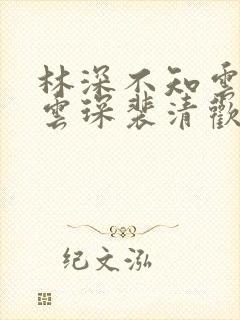 林深不知雲
雲琛裴清歡
纪文泓